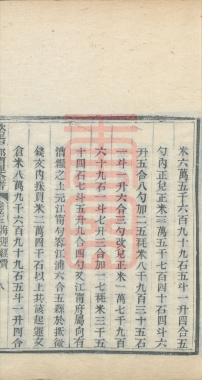 米六萬五千六百九十九石五斗一升四合五
勺內正兌正米三萬五千七百四十石四斗六
升五合八勺加二五耗米八千九百三十五石
一斗一升六合三勺改兌正米一萬七千九百
六十九石一斗七升三合加一七耗米三千五
十四石七斗五升九合四勺江甯府屬向有
漕糧之上元江甯句容江浦六合五縣於
錢文內採買米一萬四千石以上共該起運交
倉米八萬九千六百九十九石五斗一升四合
海運經費 八